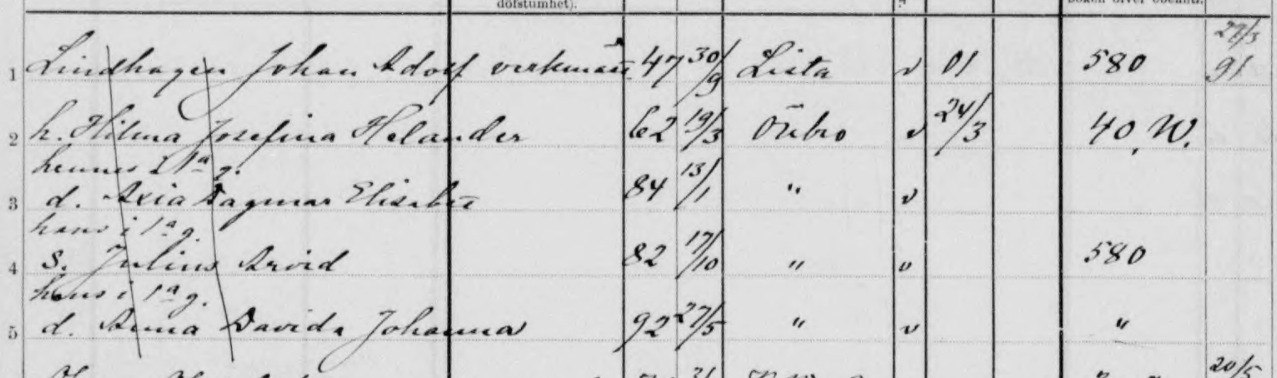 döfstumhet). boken öfver obefintl.
27/3
1 Lindhagen Johan Adolf verkmäst 47 30/9 Lista v 01 580 91
2 h. Hilma Josefina Helander 62 19/3 Örebro v 24/3 40, W.
hennes i 1a g.
3 d. Axia Dagmar Elisabet 84 13/1 " v
hans i 1a g.
4 s. Julius Arvid 82 17/10 " v 580
hans i 1a g.
5 d. Anna Davida Johanna 92 27/5 " v "
31 20/5